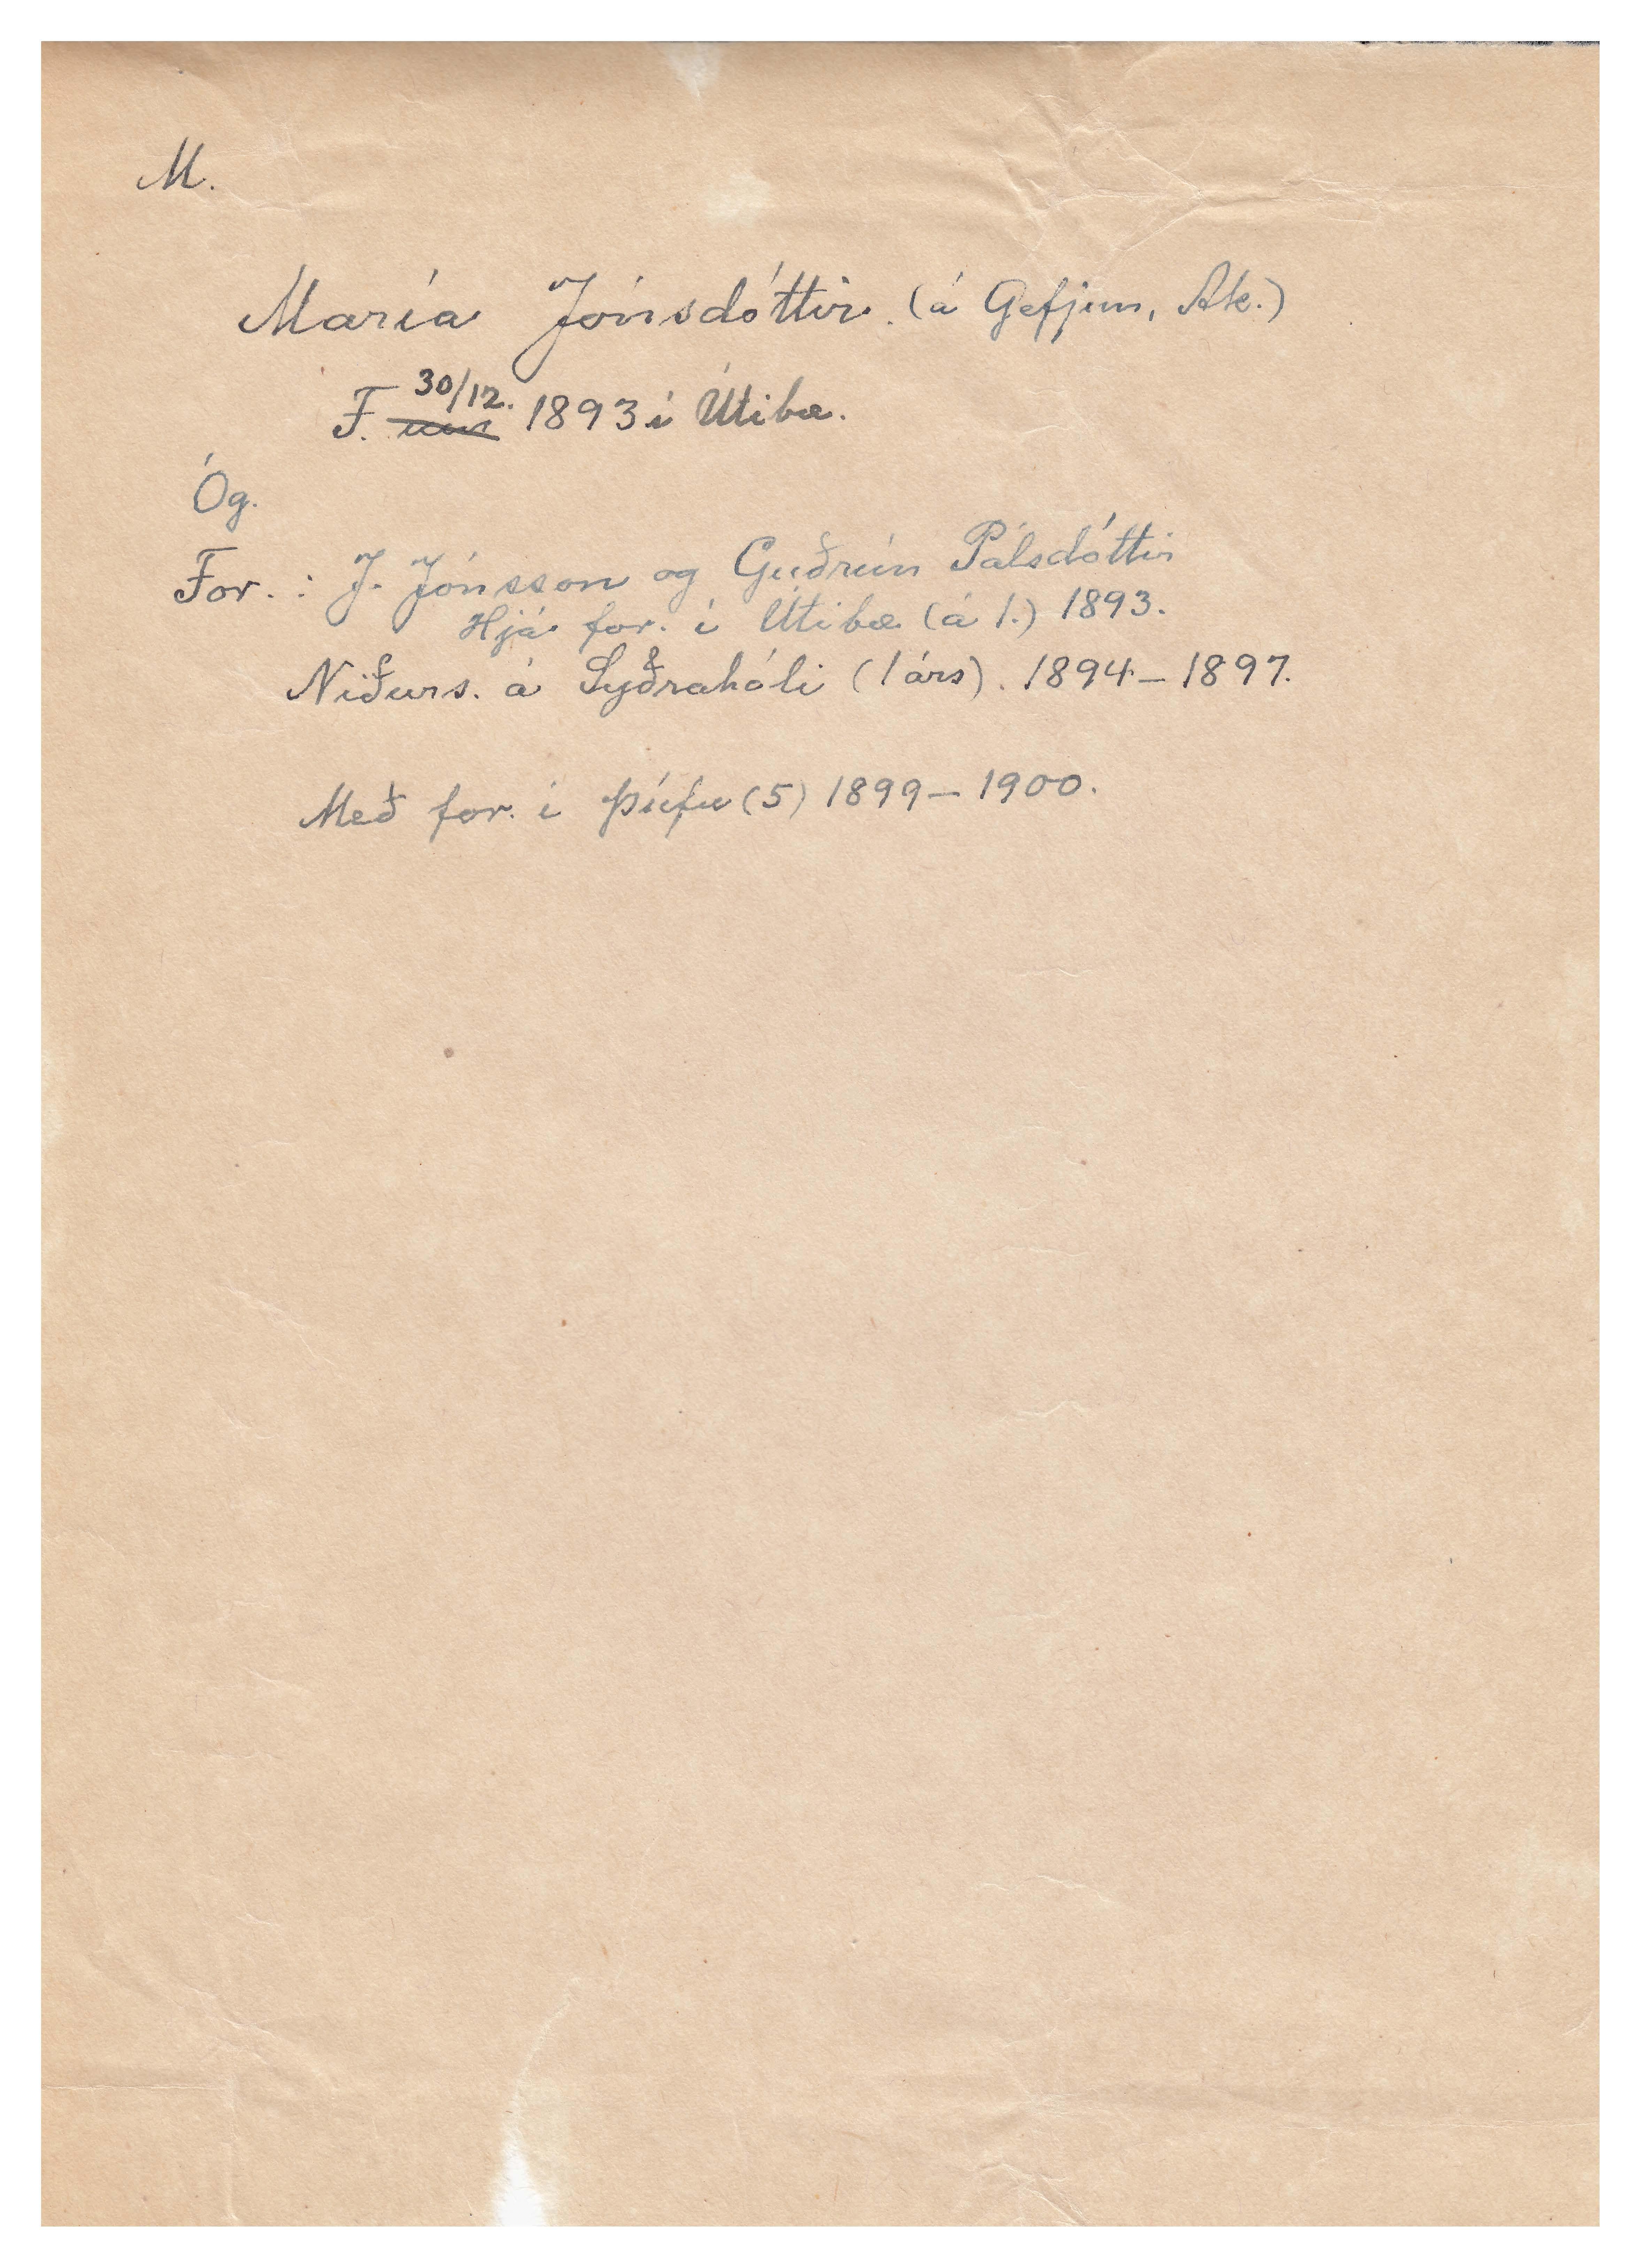 M.
María Jónsdóttir. (á Gefjun, Ak.)
F. 30/12. 1893 í Útibæ.
Óg.
For. : J. Jónsson og Guðrún Pálsdóttir
Hjá for. í Útibæ (á 1.) 1893.
Niðurs. á Syðrahóli (1 árs). 1894 – 1897.
Með for. í Þúfu (5) 1899 – 1900.